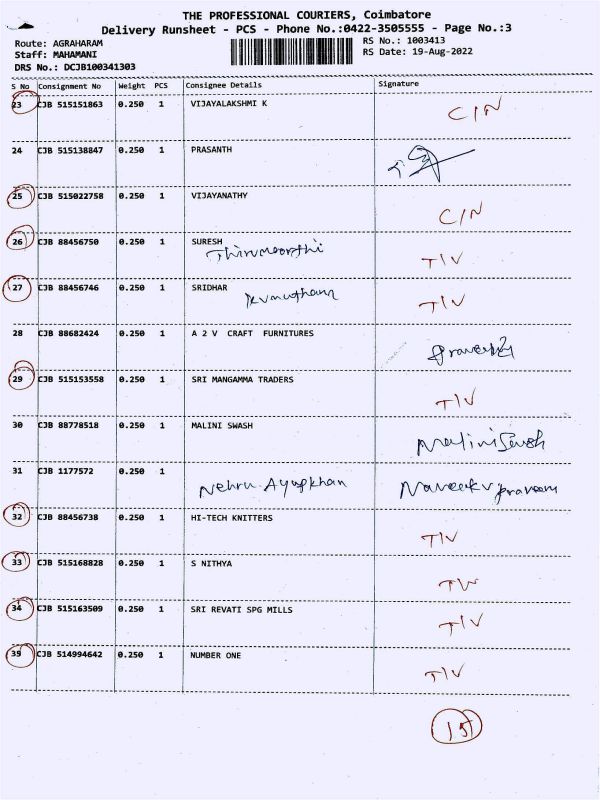 THE PROFESSIONAL COURIERS, Coimbatore
Delivery Runsheet - PCS - Phone No.:0422-3505555 - Page No.:3
Route: AGRAHARAM
RS No.: 1003413
Staff: MAHAMANI
RS Date: 19-Aug-2022
DRS No.: DCJB100341303
S No Consignment No Weight PCS Consignee Details Signature
23 CJB 515151863 0.250 1 VIJAYALAKSHMI K C/N
24 CJB 515138847 0.250 1 PRASANTH
25 CJB 515022758 0.250 1 VIJAYANATHY C/N
26 CJB 88456750 0.250 1 SURESH
Thirumoorthi T/V
27 CJB 88456746 0.250 1 SRIDHAR
T/V
28 CJB 88682424 0.250 1 A 2 V CRAFT FURNITURES
29 CJB 515153558 0.250 1 SRI MANGAMMA TRADERS
T/V
30 CJB 88778518 0.250 1 MALINI SWASH
Malini Swash
31 CJB 1177572 0.250 1
Nehru Ayupkhan praveen
32 CJB 88456738 0.250 1 HI-TECH KNITTERS
T/V
33 CJB 515168828 0.250 1 S NITHYA
T/V
34 CJB 515163509 0.250 1 SRI REVATI SPG MILLS
T/V
35 CJB 514994642 0.250 1 NUMBER ONE
T/V
15